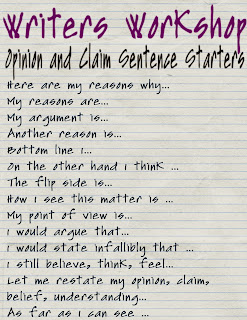 Writers Workshop
Opinion and Claim Sentence Starters
Here are my reasons why...
My reasons are...
My argument is...
Another reason is...
Bottom line i...
On the other hand I think ...
The flip side is...
How I see this matter is ...
My point of view is...
I would argue that...
I would state infallibly that ...
I still believe, think, feel...
Let me restate my opinion, claim,
belief, understanding...
As far as I can see ...